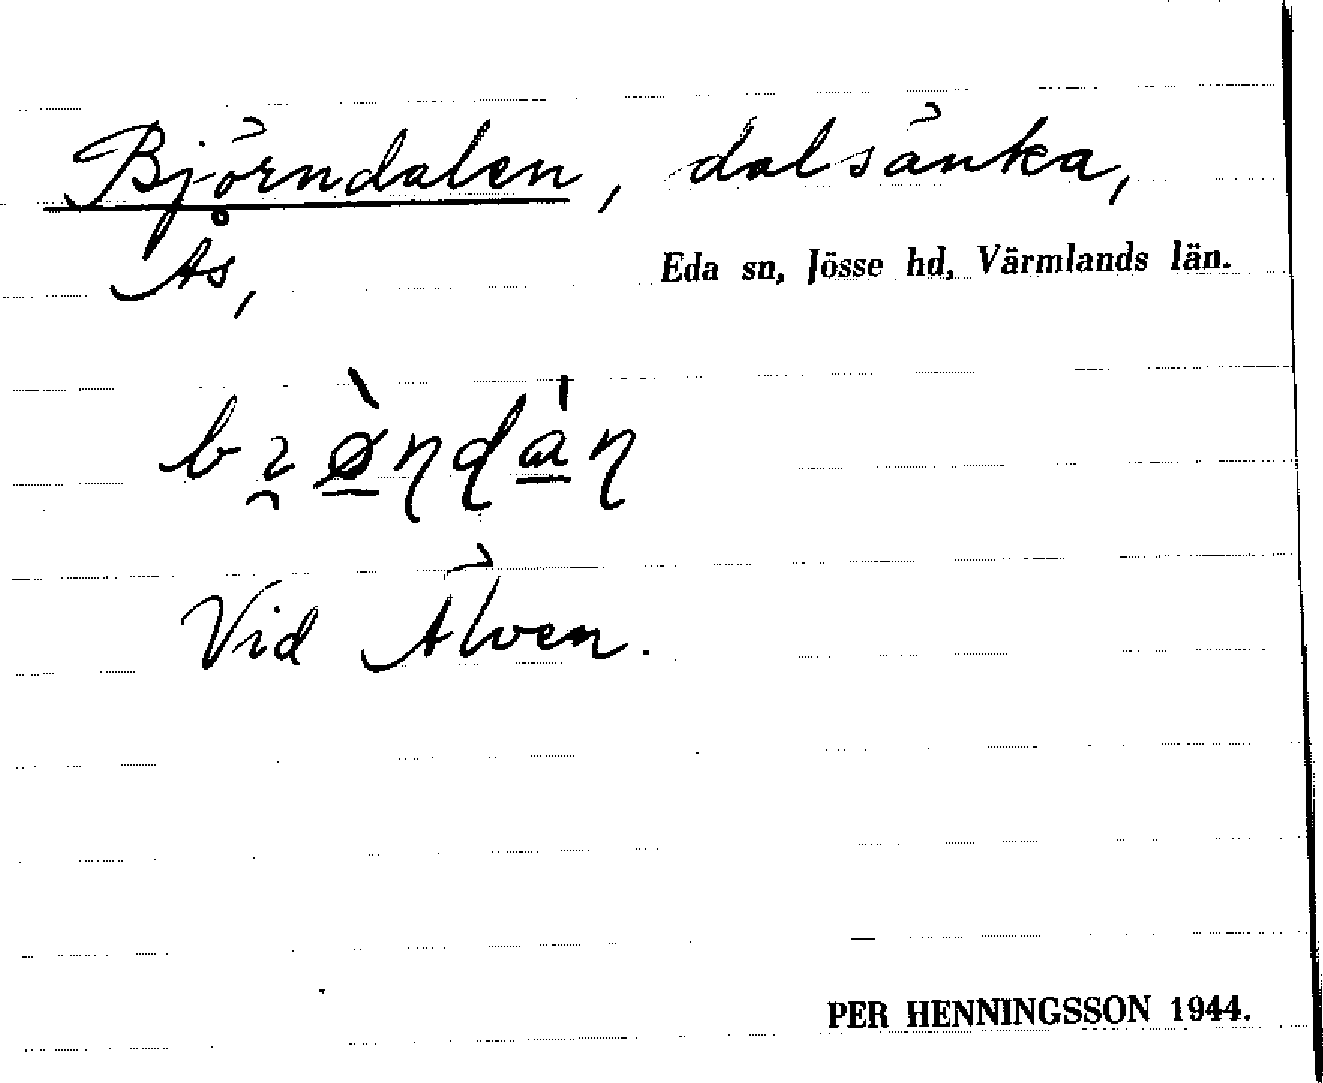 Björndalen, dalsänka,
Ås,
Eda sn, Jösse hd, Värmlands län.
Vid Älven.
PER HENNINGSSON 1944.